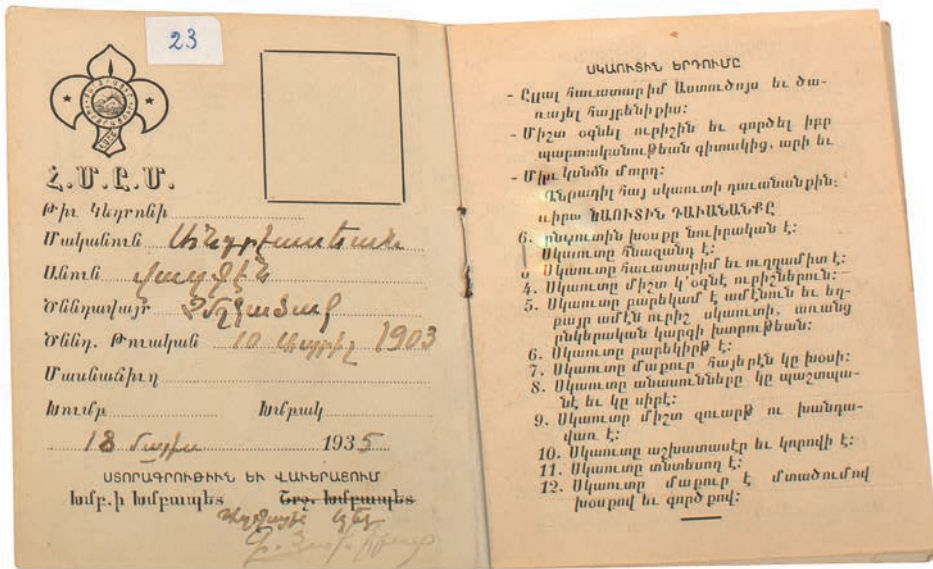 23
Հ.Մ.Ը.Մ.
Թիւ Կեդրոնի
Մականուն
Անուն
Ծննդավայր Չմշկածագ
Ծննդ. Թուական 10 Ապրիլ 1903
Մասնաճիւղ
Խումբ Խմբակ
18 Մայիս 1935
ՍՏՈՐԱԳՐՈՒԹԻՒՆ ԵՒ ՎԱՒԵՐԱՑՈՒՄ
Խմբ.ի Խմբապետ Շրջ. Խմբապետ
ՍԿԱՈՒՏԻՆ ԵՐԴՈՒՄԸ
- Ըլլալ հաւատարիմ Աստուծոյս եւ ծա-
ռայել հայրենիքիս:
- Միշտ օգնել ուրիշին եւ գործել իբր
պարտականութեան գիտակից, արի եւ
մարդ:
- Միշտ հայ սկաուտի դաւանանքին:
ԴԱՒԱՆԱՆՔԸ
խօսքը նուիրական է:
Սկաուտը հնազանդ է:
Սկաուտը հաւատարիմ եւ ուղղամիտ է:
4. Սկաուտը միշտ կ՚օգնէ ուրիշներուն:
5. Սկաուտը բարեկամ է ամէնուն եւ եղ-
բայր ամէն ուրիշ սկաուտի, առանց
ընկերական կարգի խտրութեան:
6. Սկաուտը բարեկիրթ է:
7. Սկաուտը մաքուր հայերէն կը խօսի:
8. Սկաուտը անասունները կը պաշտպա-
նէ եւ կը սիրէ:
9. Սկաուտը միշտ զուարթ ու խանդա-
վառ է:
10. Սկաուտը աշխատասէր եւ կորովի է:
11. Սկաուտը տնտեսող է:
12. Սկաուտը մաքուր է մտածումով
խօսքով եւ գործքով: